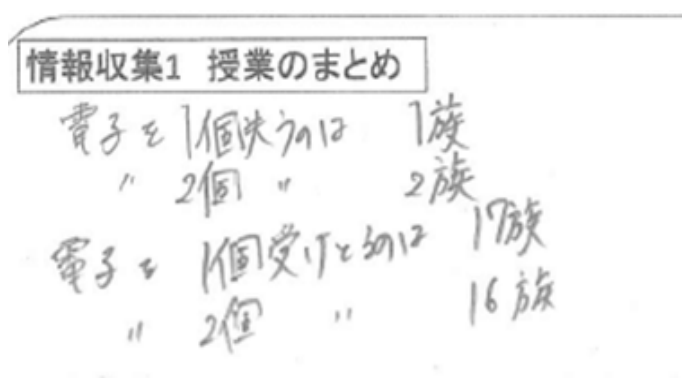 情報収集1 授業のまとめ
電子を1個失うのは 1族
〃 2個 〃 2族
電子を 1個受けとるのは 17族
〃 2個 〃 16族